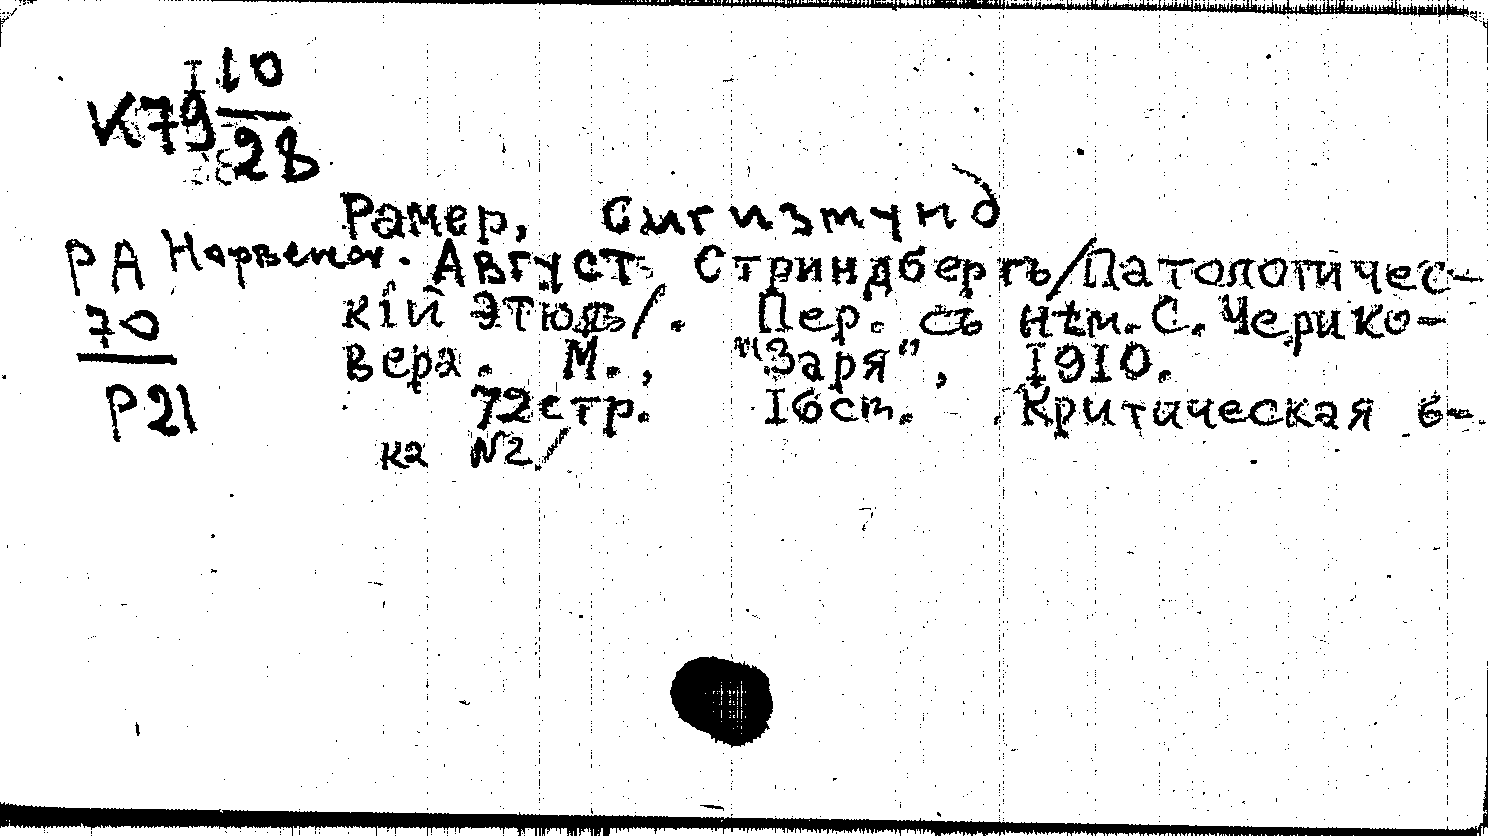 I 10
К79 28
Рамер, Сигизмунд
РА Норвежск. Август Стриндбергъ/Патологичес-
70 кій Этюдъ/. Пер. съ нѣм. С. Черико-
вера. М., "Заря", 1910.
Р21 72стр. 16ст. Критическая б-
ка №2/